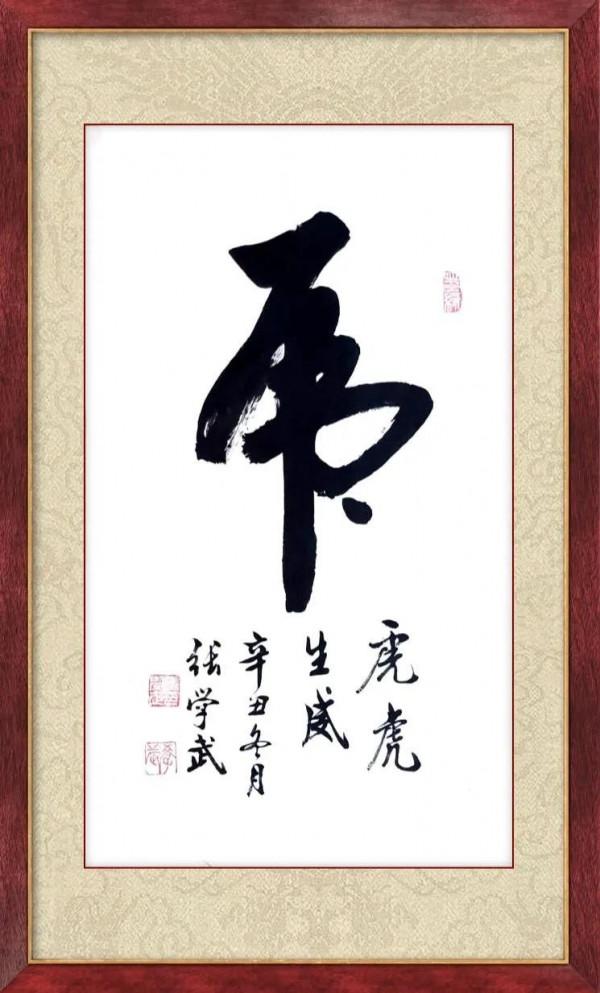 虎
虎虎
生威
辛丑冬月
张学武